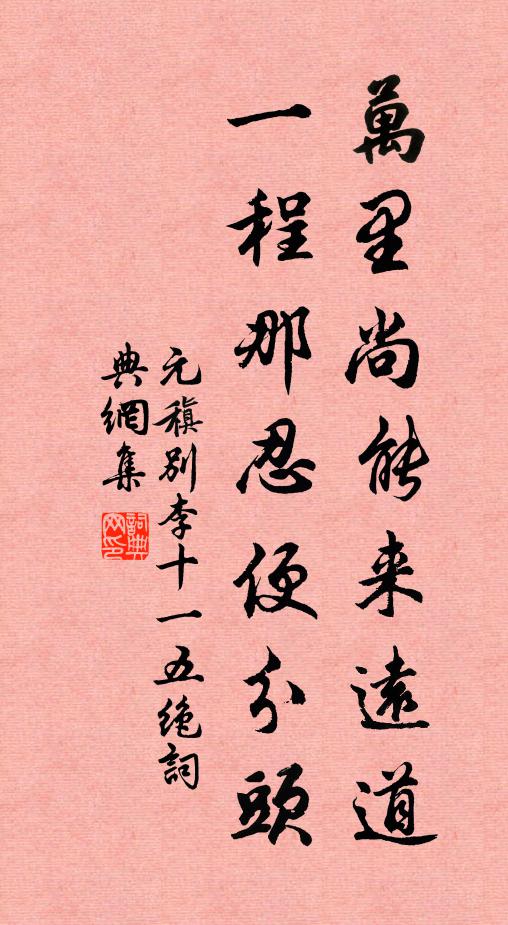 萬里尚能来遠道
一程那忍便分頭
元稹别李十一五绝詞
典網集
詞典网印